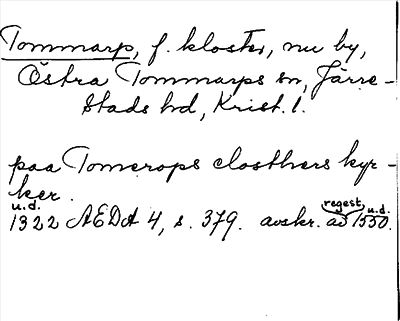 Tommarp, f. kloster, nu by,
Östra Tommarps sn, Järre-
stads hd, Krist. l.
paa Tomerops closthers kyr-
ker.
u.d. regest u.d.
1322 AEDA 4, s. 379. avskr. av 1550.